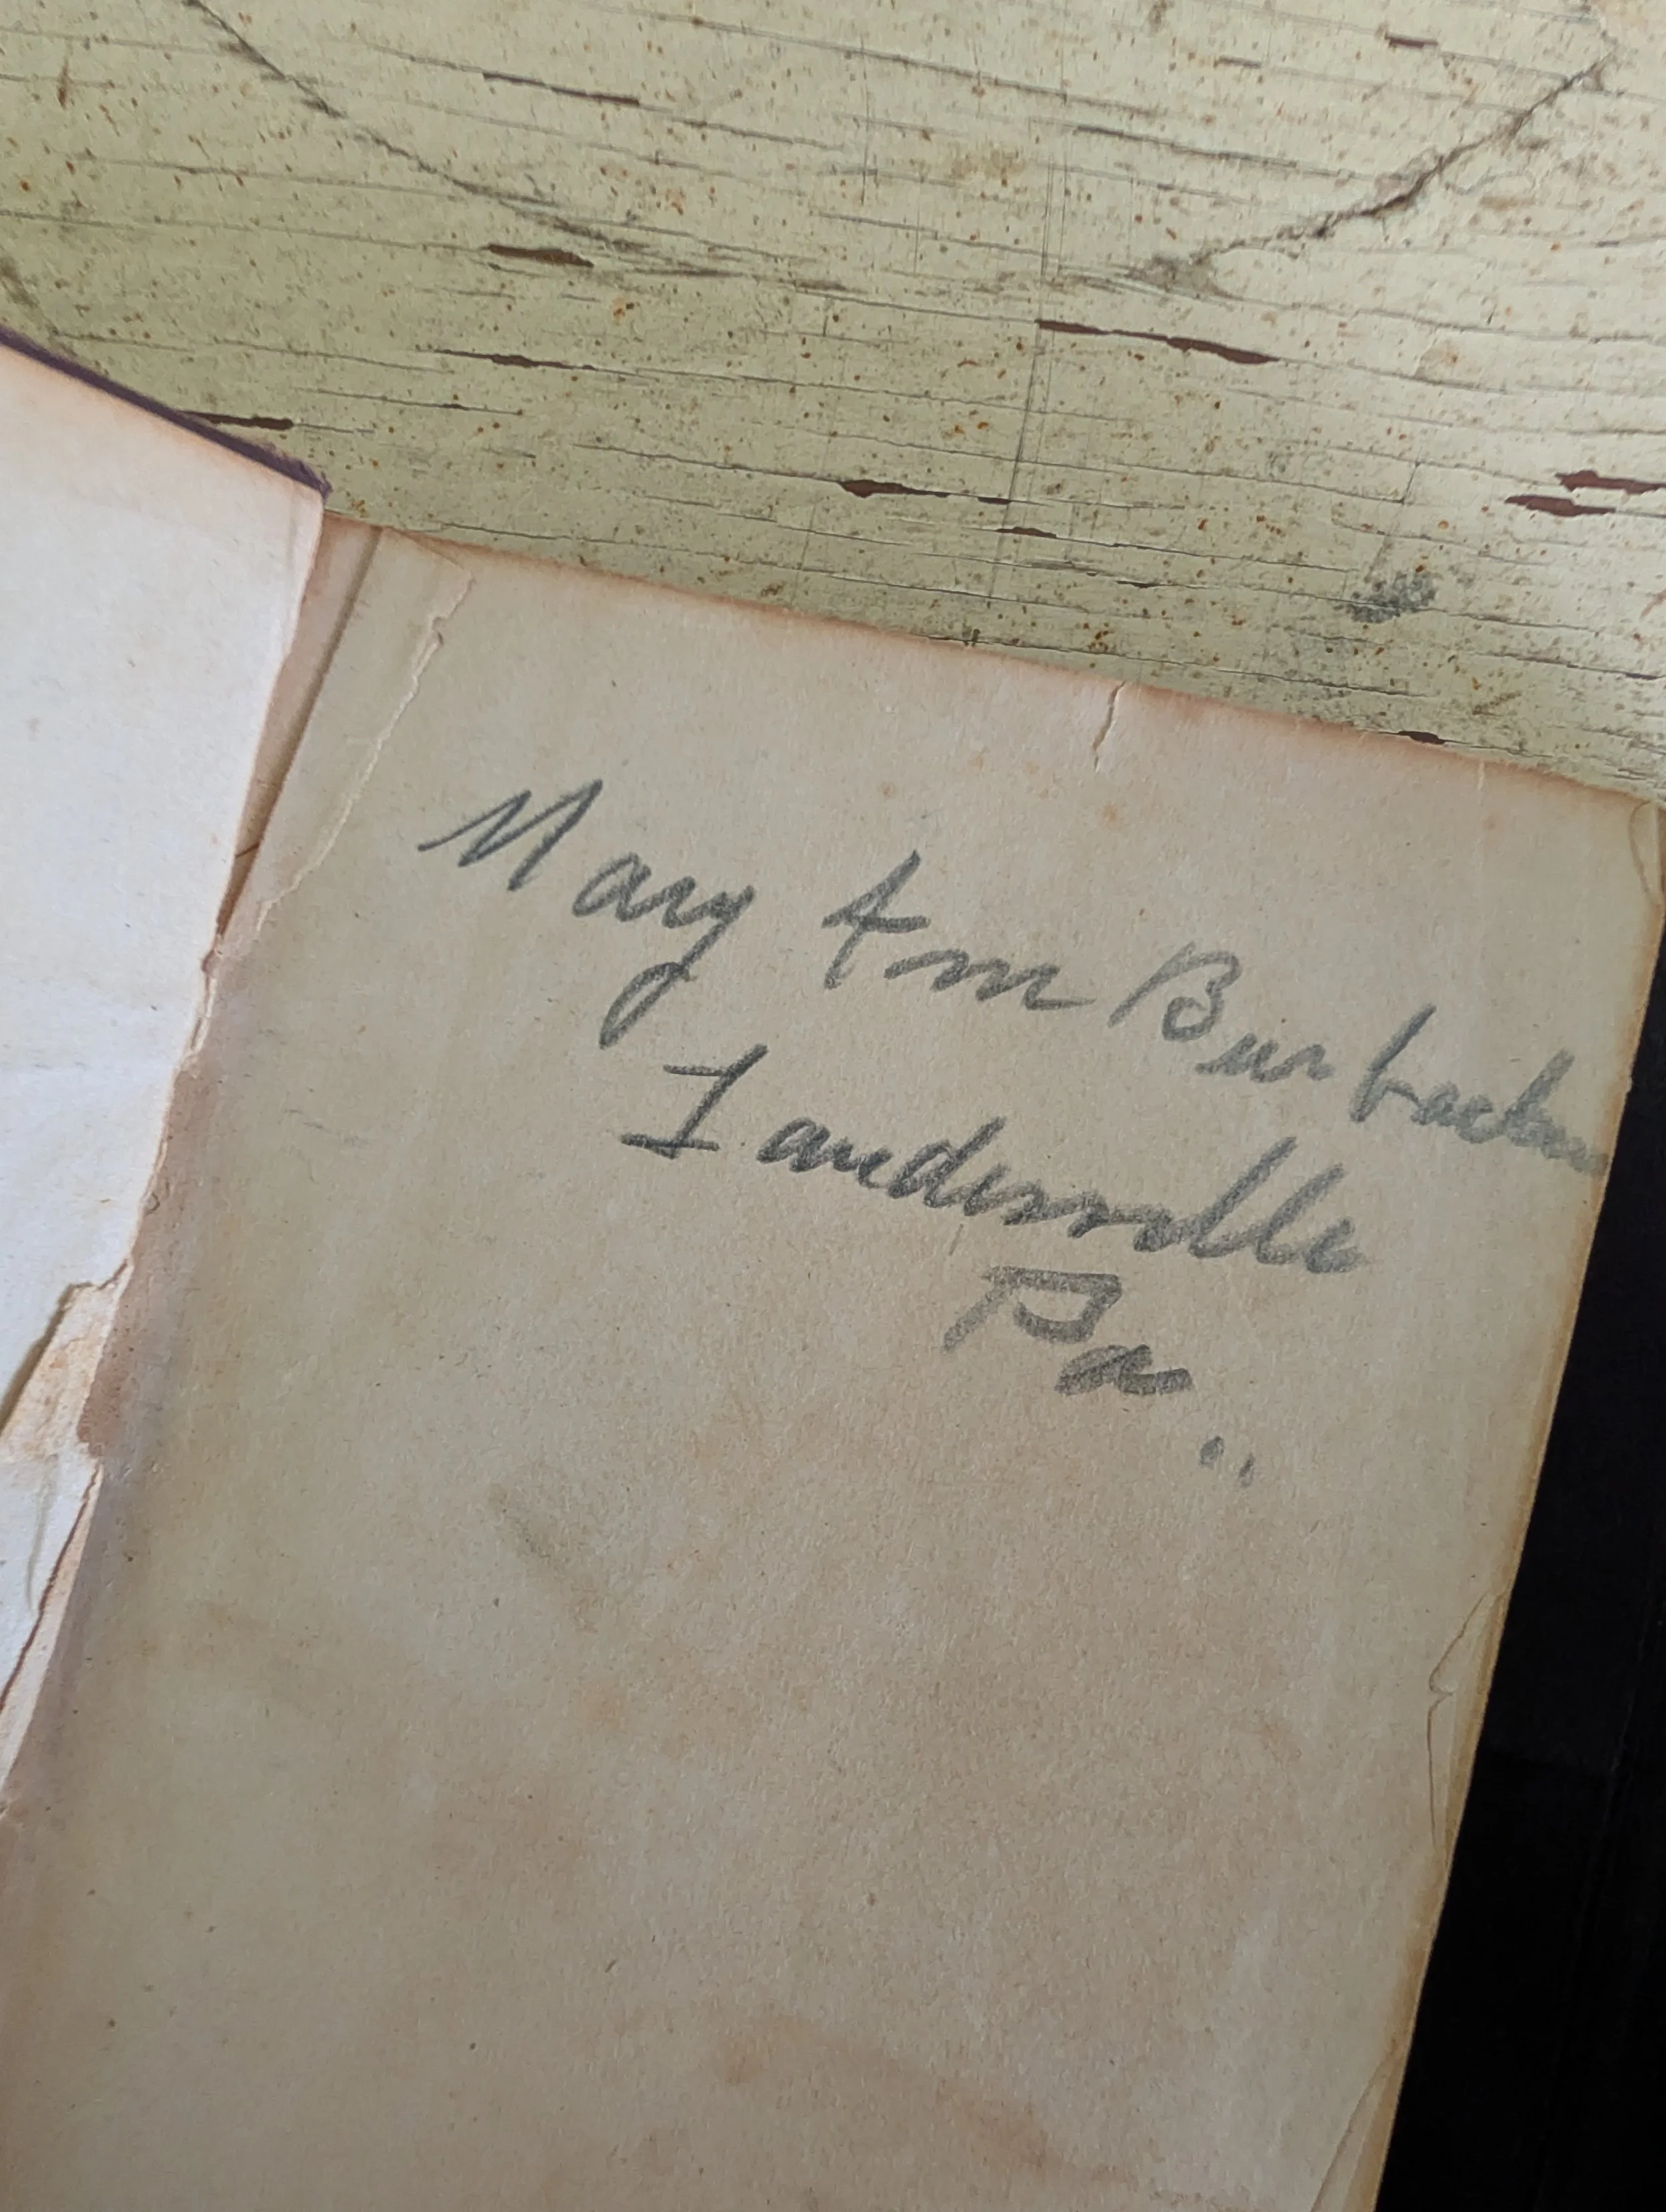 Mary Ann
Landisville
Pa..